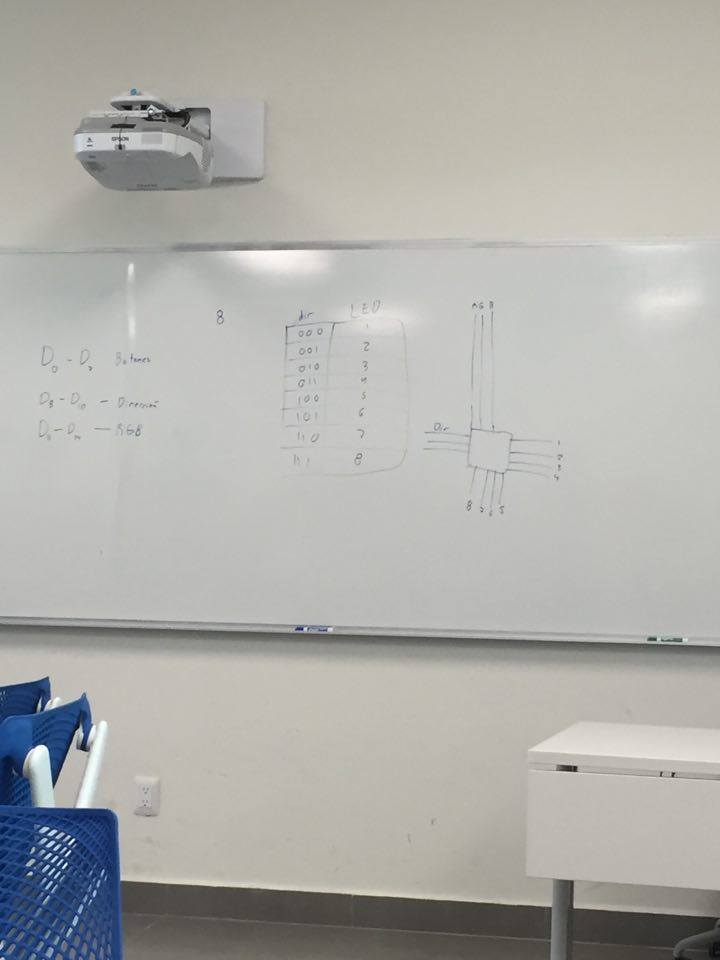 EPSON
8
D₀ - D₇ Botones
D₈ - D₁₀ - Dirección
RGB
dir LED
000 1
001 2
010 3
011 4
100 5
101 6
110 7
111 8
R G B
Dir
1
2
3
4
8 7 6 5